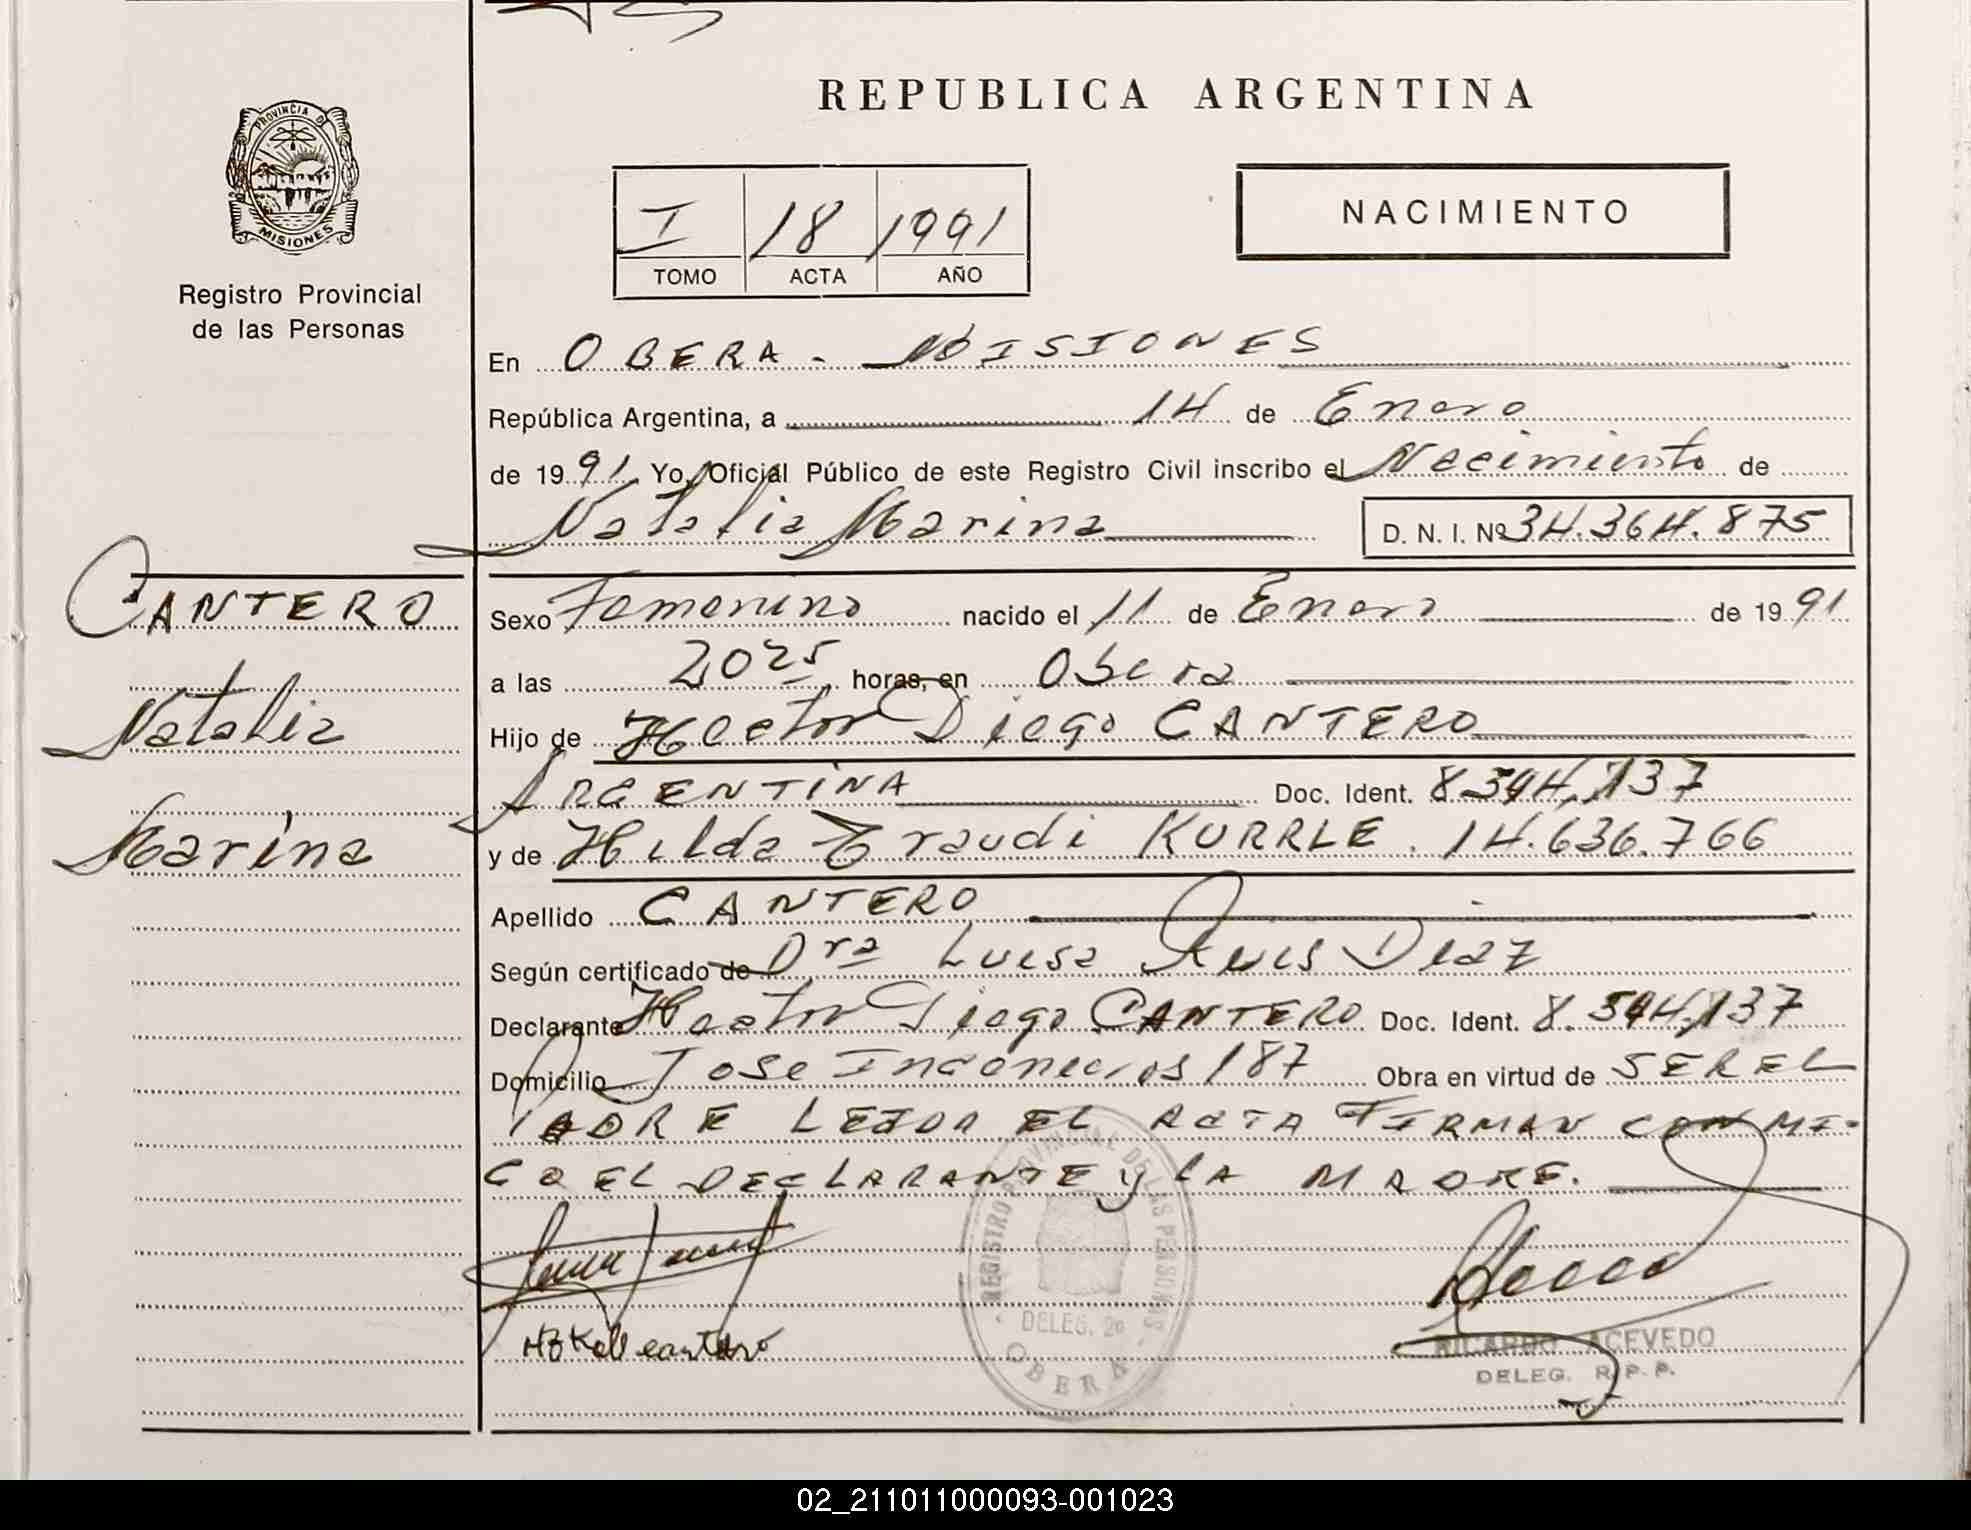 REPUBLICA ARGENTINA
PROVINCIA DE
MISIONES
Registro Provincial
de las Personas
I 18 1991
TOMO ACTA AÑO
NACIMIENTO
En OBERA - MISIONES
República Argentina, a 14 de Enero
de 1991 Yo, Oficial Público de este Registro Civil inscribo el Nacimiento de
Natalia Marina D. N. I. Nº 34.364.875
CANTERO
Natalia
Marina
Sexo Femenino nacido el 11 de Enero de 1991
a las 20 25 horas, en Obera
Hijo de Hector Diego CANTERO
ARGENTINA Doc. Ident. 8.544,137
y de Hilda Eraudi KURRLE. 14.636.766
Apellido CANTERO
Según certificado de Dra Luisa Ruis Diaz
Declarante Hector Diego CANTERO Doc. Ident. 8.544,137
Domicilio Jose Ingenieros 187 Obra en virtud de SER EL
PADRE LEIDA EL ACTA FIRMAN CONMI-
GO EL DECLARANTE y LA MADRE.
REGISTRO PROVINCIAL DE LAS PERSONAS
DELEG. 2º
OBERA
RICARDO ACEVEDO
DELEG. R.P.P.
02_211011000093-001023